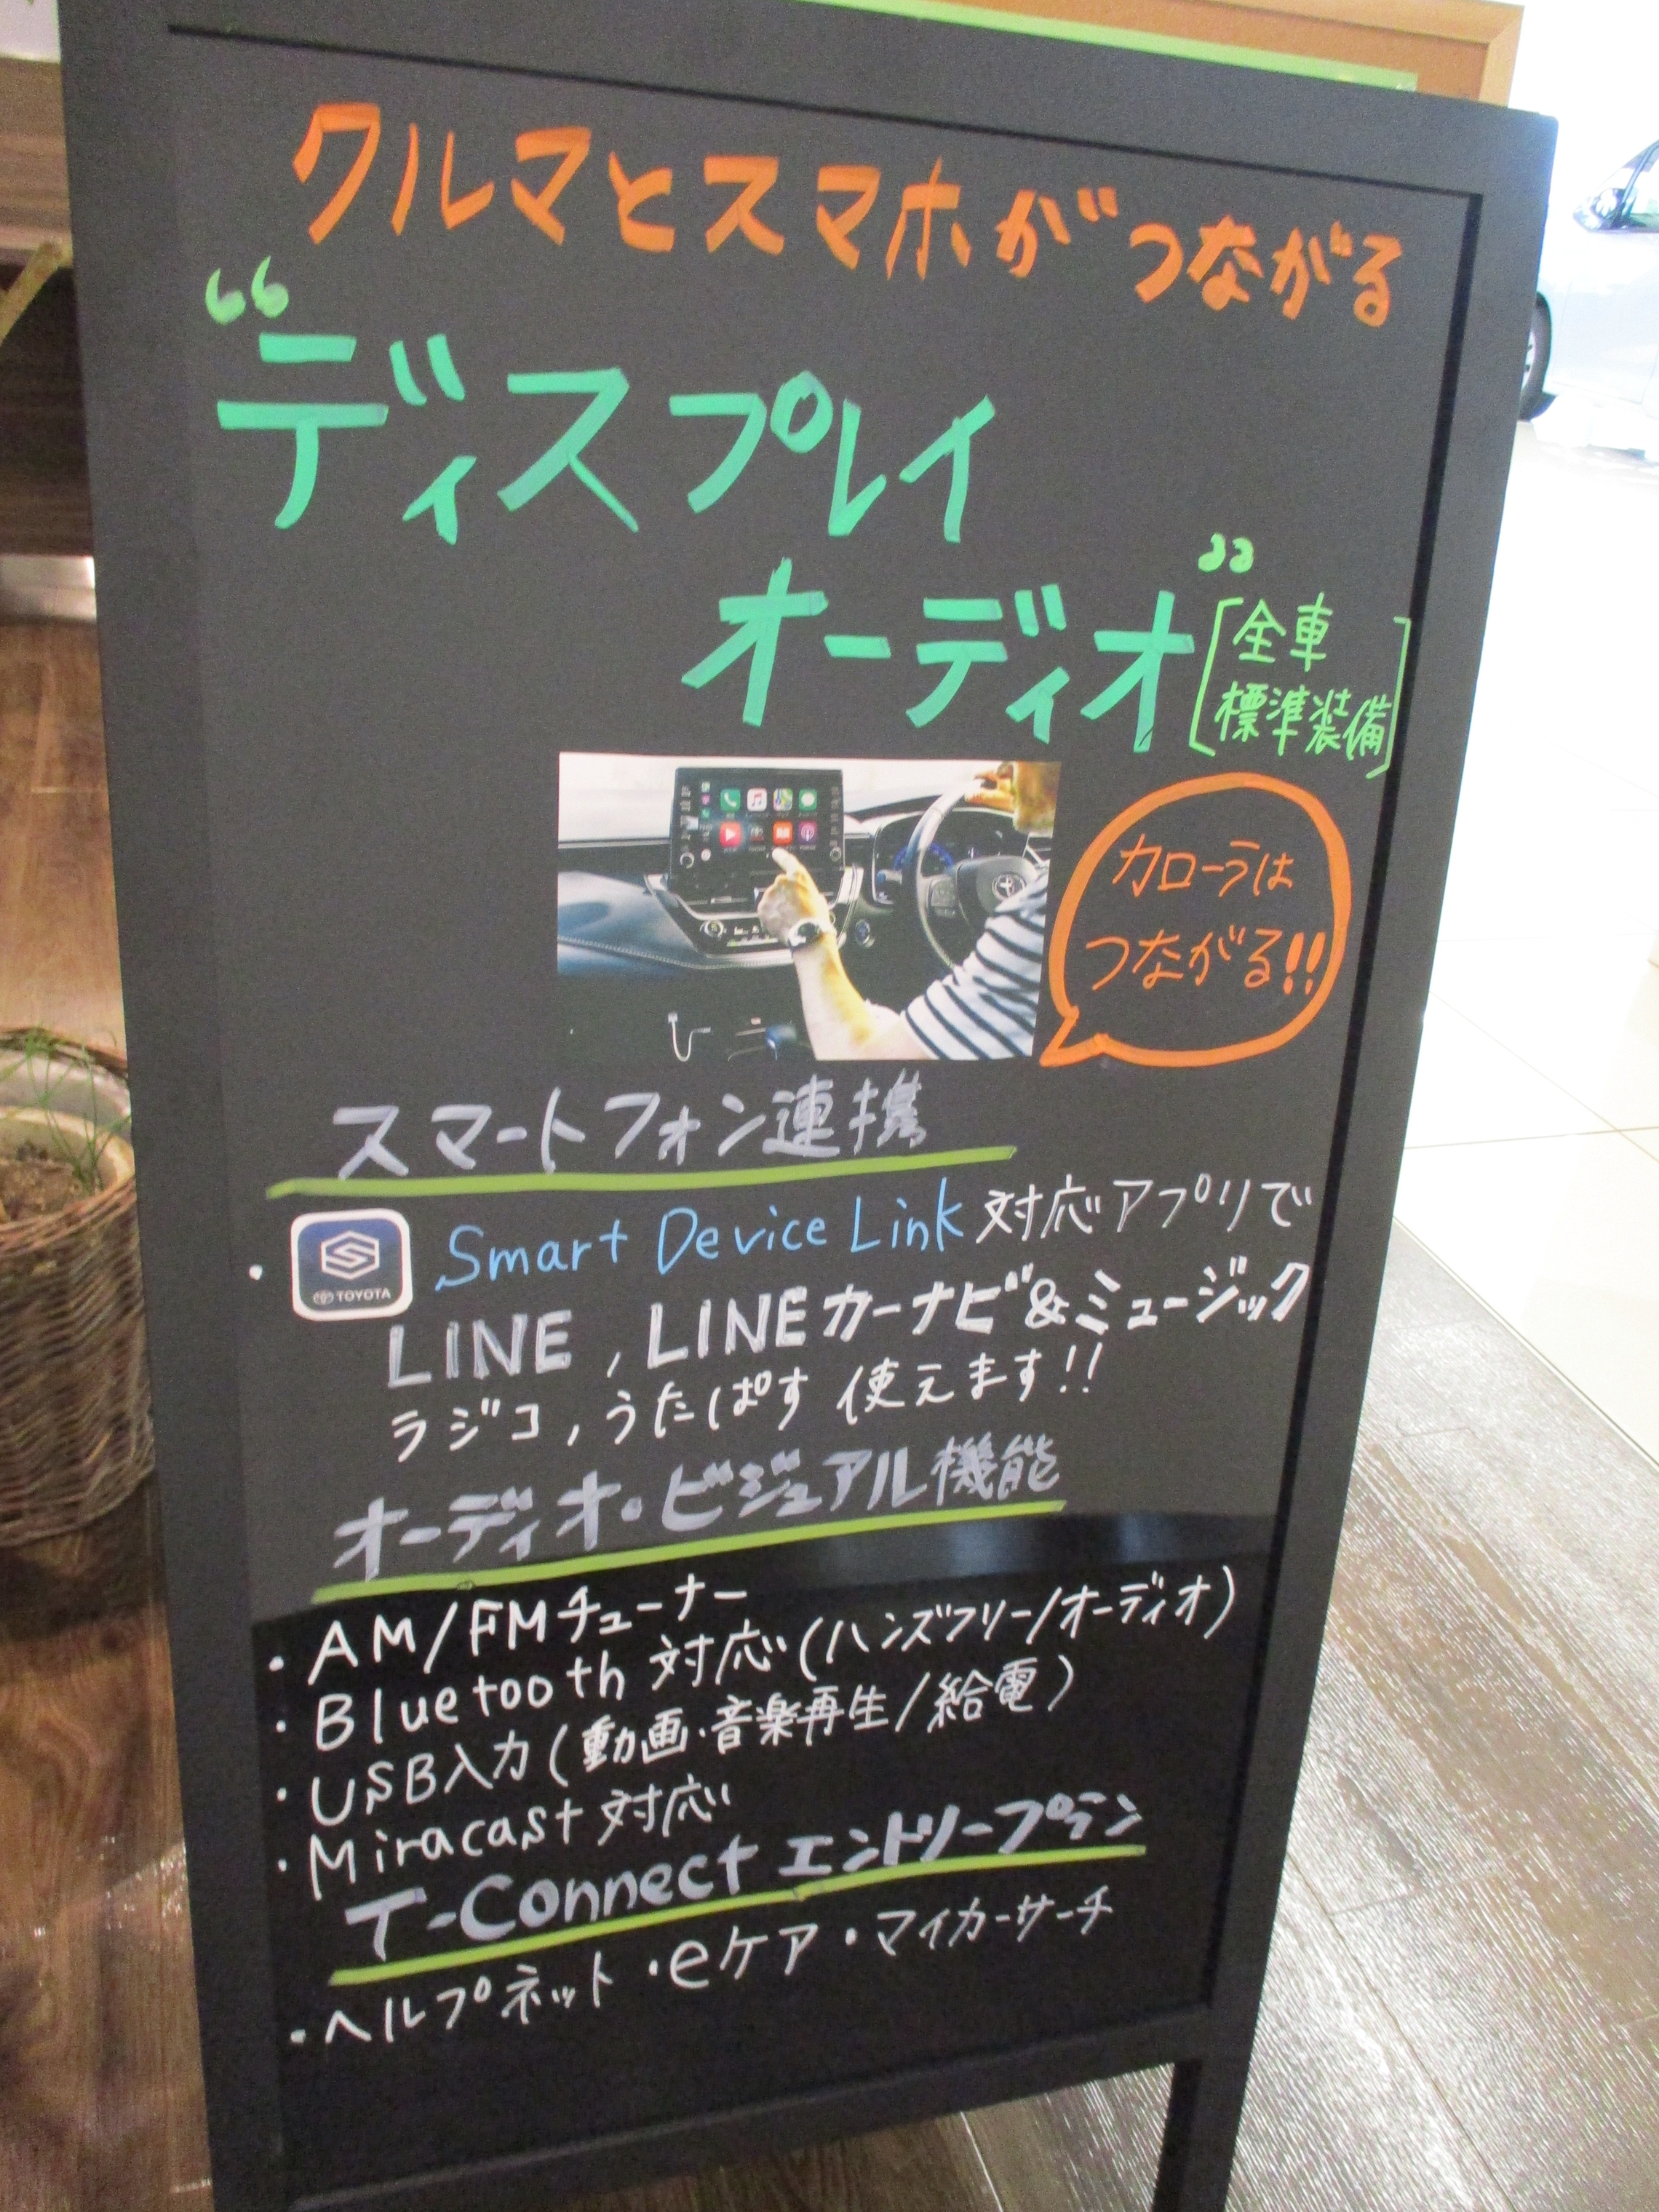 クルマとスマホがつながる
“ディスプレイ
オーディオ”
[全車
標準装備]
カローラは
つながる!!
スマートフォン連携
・ TOYOTA Smart Device Link 対応アプリで
LINE, LINEカーナビ&ミュージック
ラジコ, うたぱす 使えます!!
オーディオ・ビジュアル機能
・AM/FMチューナー
・Bluetooth 対応(ハンズフリー/オーディオ)
・USB入力(動画・音楽再生/給電)
・Miracast 対応
T-Connect エントリープラン
・ヘルプネット・eケア・マイカーサーチ